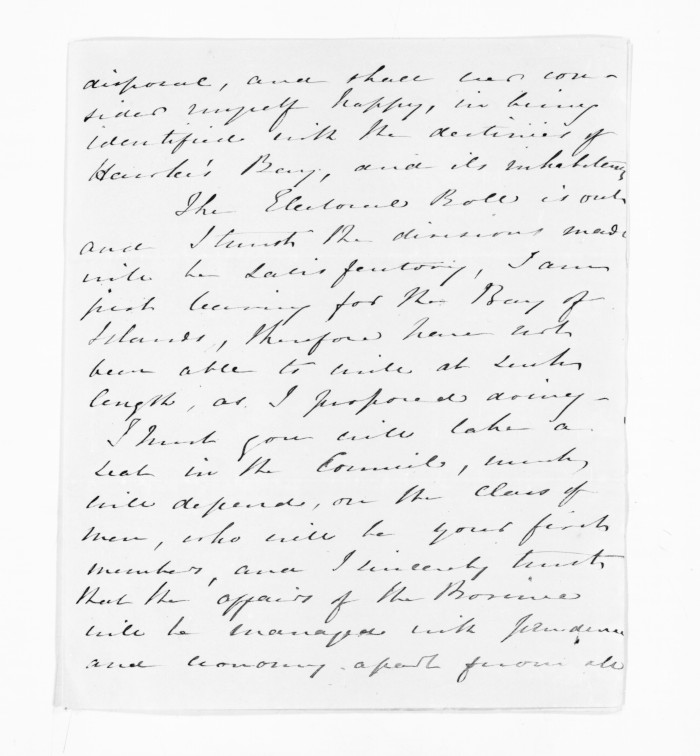 disposal, and shall ever con-
sider myself happy, in being
identified with the destinies of
Hawke's Bay, and its inhabitants
The Electoral Roll is out
and I trust the divisions made
will be satisfactory, I am
just leaving for the Bay of
Islands, therefore have not
been able to write at such
length, as I proposed doing-
I trust you will take a
seat in the Council, much
will depend, on the class of
men, who will be your first
members, and I sincerely trust
that the affairs of the Province
will be managed with prudence
and economy apart from all